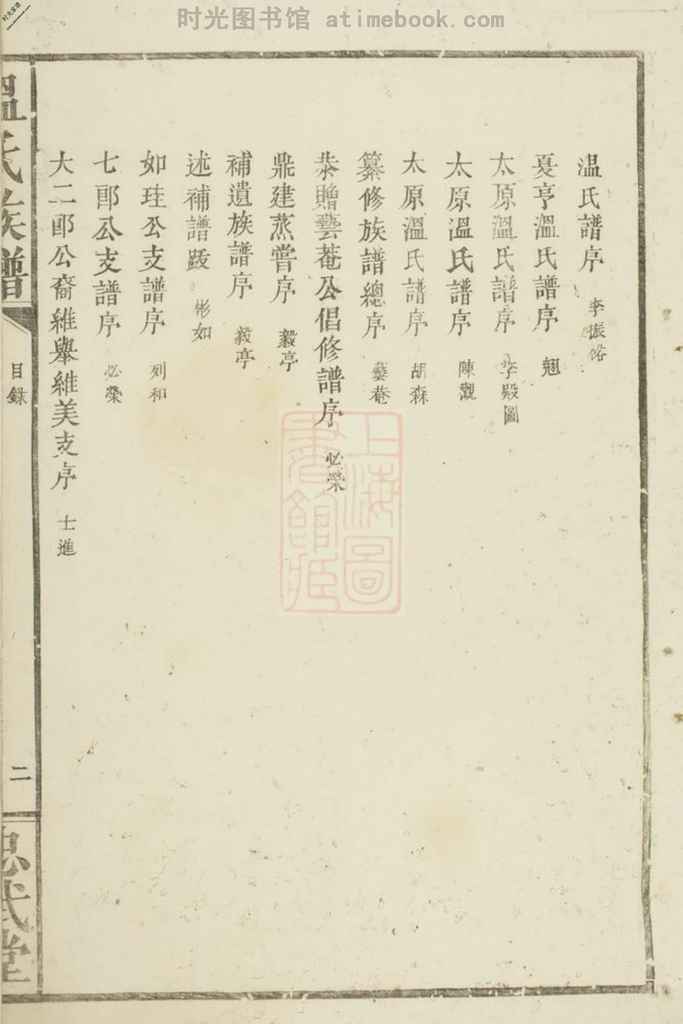 时光图书馆 atimebook.com
温氏譜序 李振裕
夏亨溫氏譜序 魁
太原溫氏譜序 李殿圖
太原溫氏譜序 陳觀
太原溫氏譜序 胡森
纂修族譜總序 藝菴
恭贈藝菴公倡修譜序 必榮
鼎建蒸嘗序 毅亭
補遺族譜序 毅亭
述補譜跋 彬如
如珪公支譜序 列和
七郎公支譜序 必榮
大二郎公裔維舉維美支序 士進
溫氏族譜
目錄
二
忠武堂
上海圖書館藏